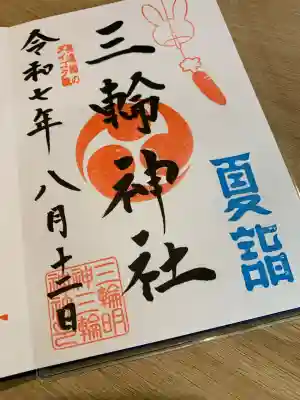 夏詣
三輪神社
令和七年八月十二日
三輪明
神三輪